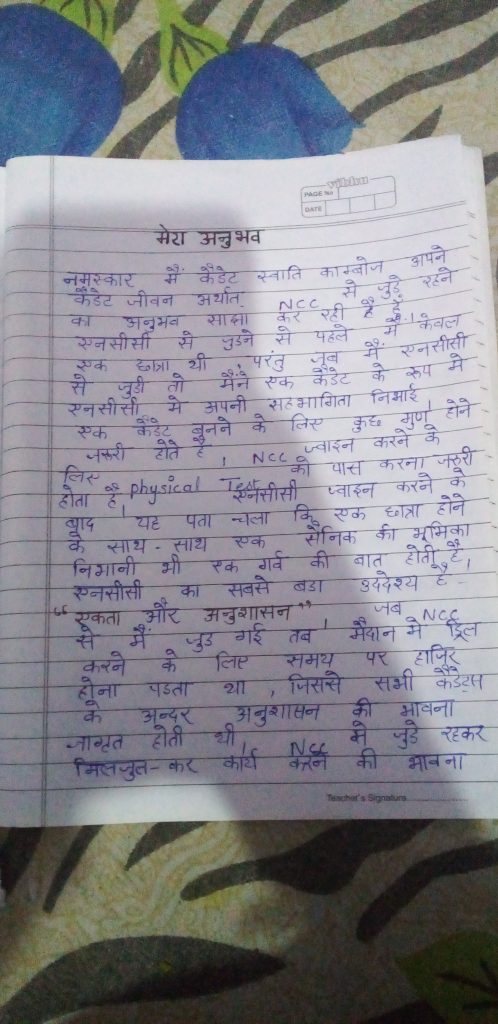 vibhu
PAGE No
DATE
मेरा अनुभव
नमस्कार मैं कैडेट स्वाति काम्बोज अपने
कैडेट जीवन अर्थात् NCC से जुडे रहने
का अनुभव साझा कर रही हूँ।
एनसीसी से जुडने से पहले मैं केवल
एक छात्रा थी, परंतु जब मैं एनसीसी
से जुडी तो मैंने एक कैडेट के रूप मे
एनसीसी मे अपनी सहभागिता निभाई,
एक कैडेट बनने के लिए कुछ गुण होने
जरूरी होते है, NCC ज्वाइन करने के
लिए Physical Test को पास करना जरुरी
होता है, एनसीसी ज्वाइन करने के
बाद यह पता चला कि एक छात्रा होने
के साथ-साथ एक सैनिक की भूमिका
निभानी भी एक गर्व की बात होती है,
एनसीसी का सबसे बडा उददेश्य है-
"एकता और अनुशासन", जब NCC
से मैं जुड गई तब मैदान मे ड्रिल
करने के लिए समय पर हाजिर
होना पडता था, जिससे सभी कैडेट्स
के अन्दर अनुशासन की भावना
जागृत होती थी, NCC मे जुडे रहकर
मिलजुल-कर कार्य करने की भावना
Teacher's Signature